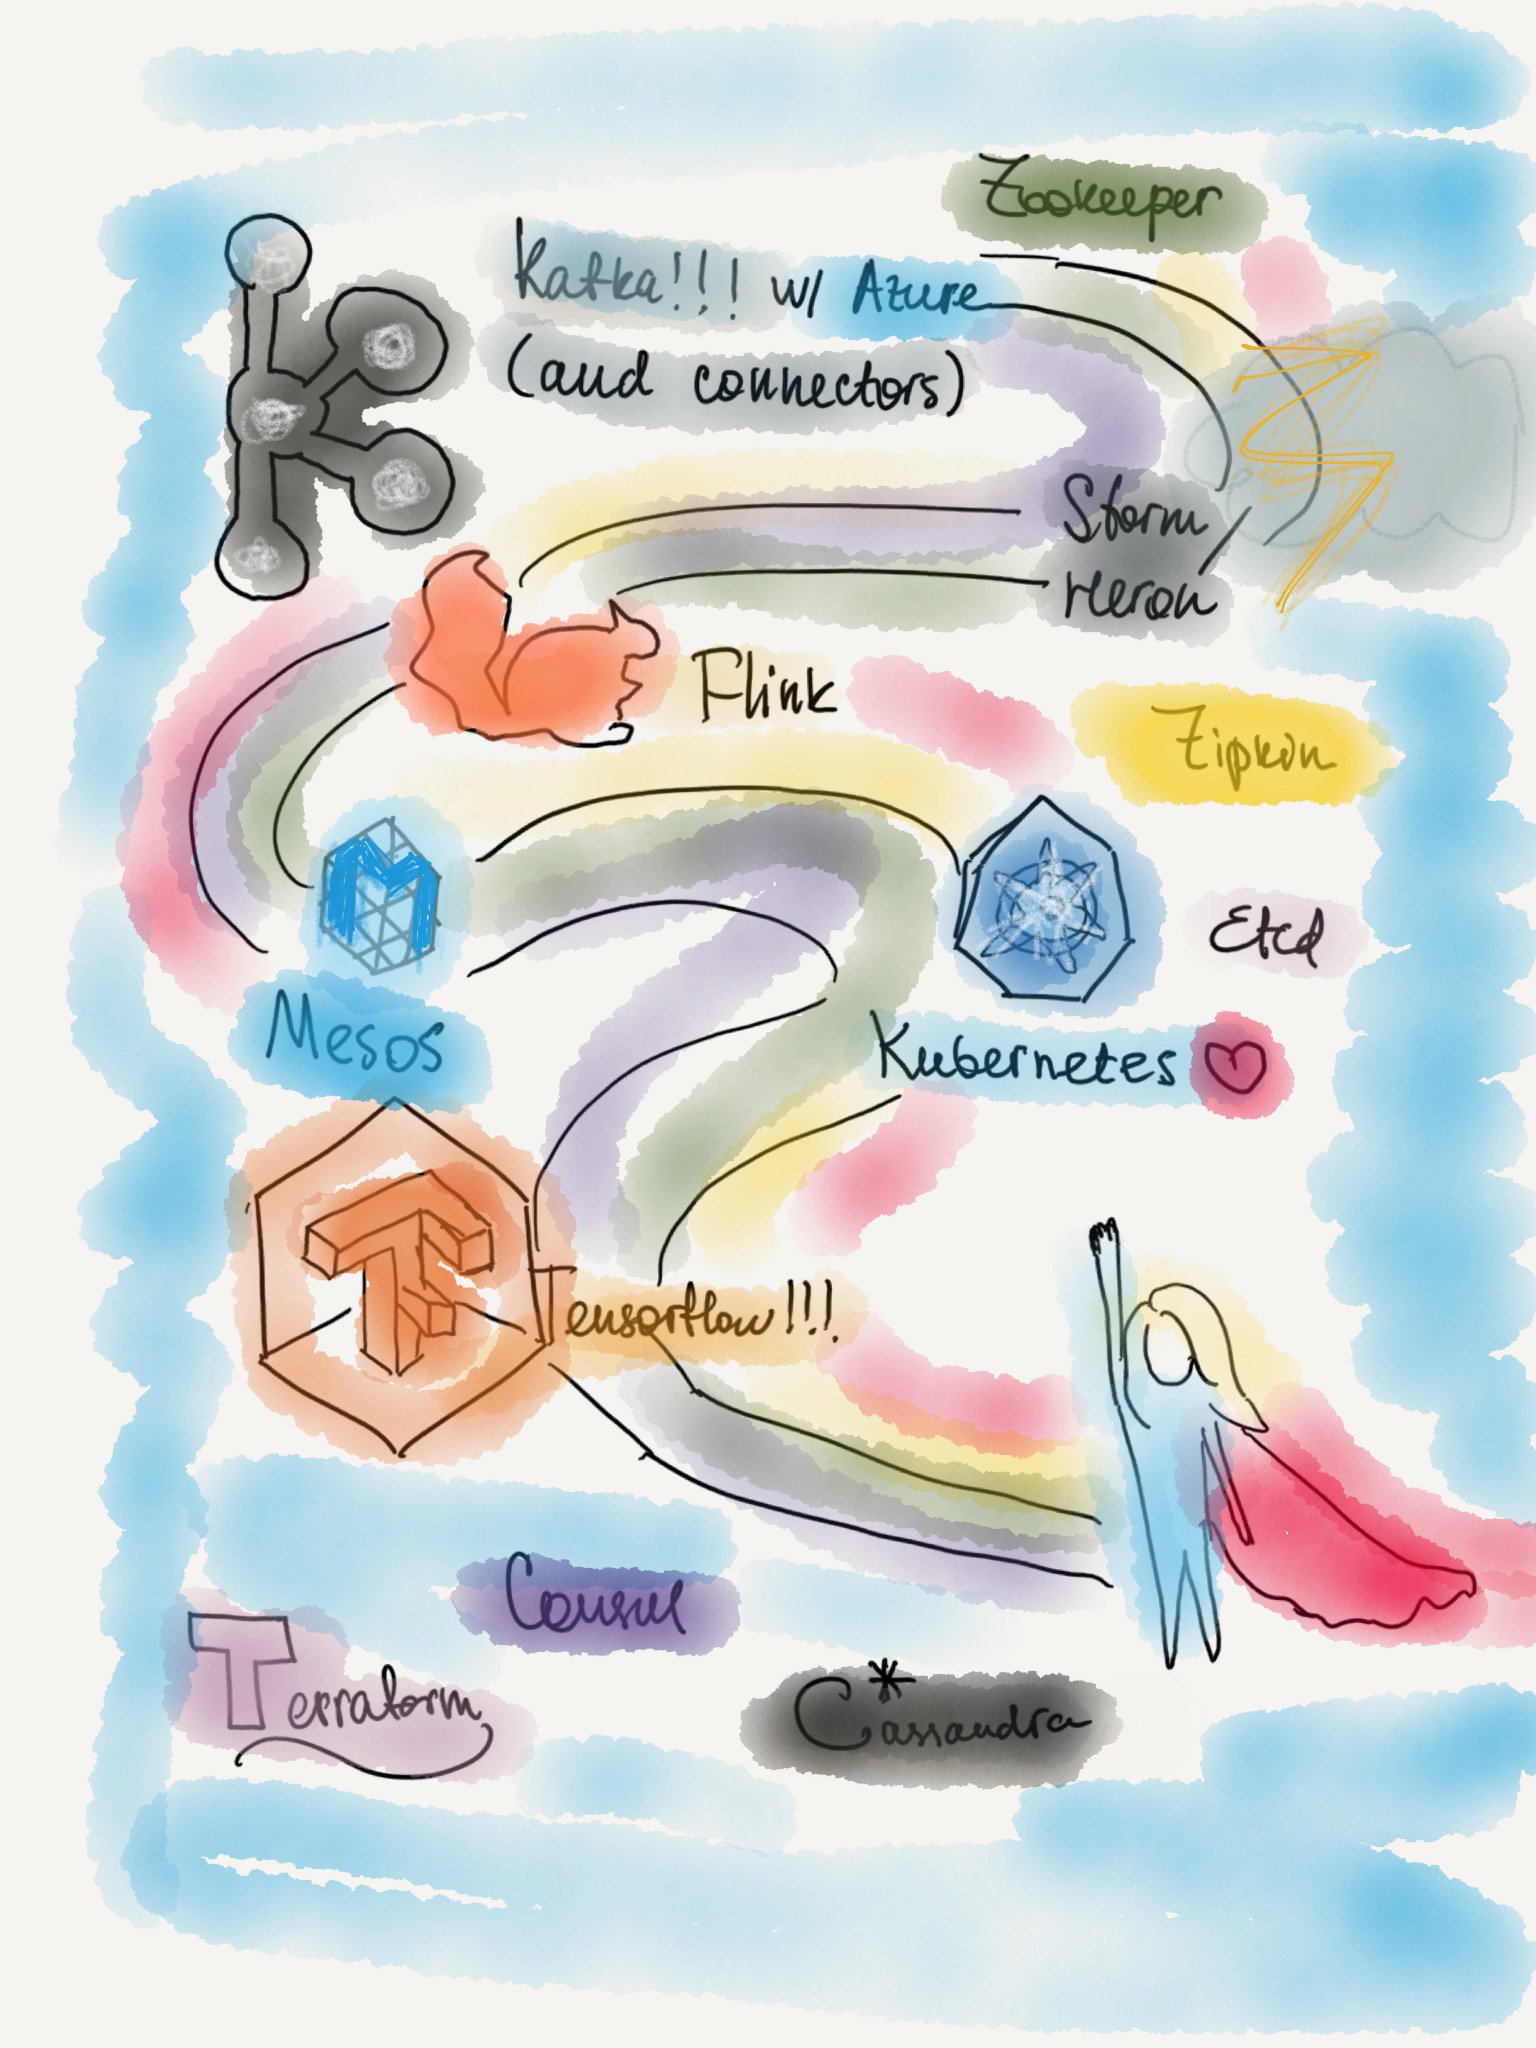 Zookeeper
Kafka!!! w/ Azure
(and connectors)
Storm /
Heron
Flink
Zipkin
M
Etcd
Mesos
Kubernetes
Tensorflow!!!
Consul
Terraform
Cassandra